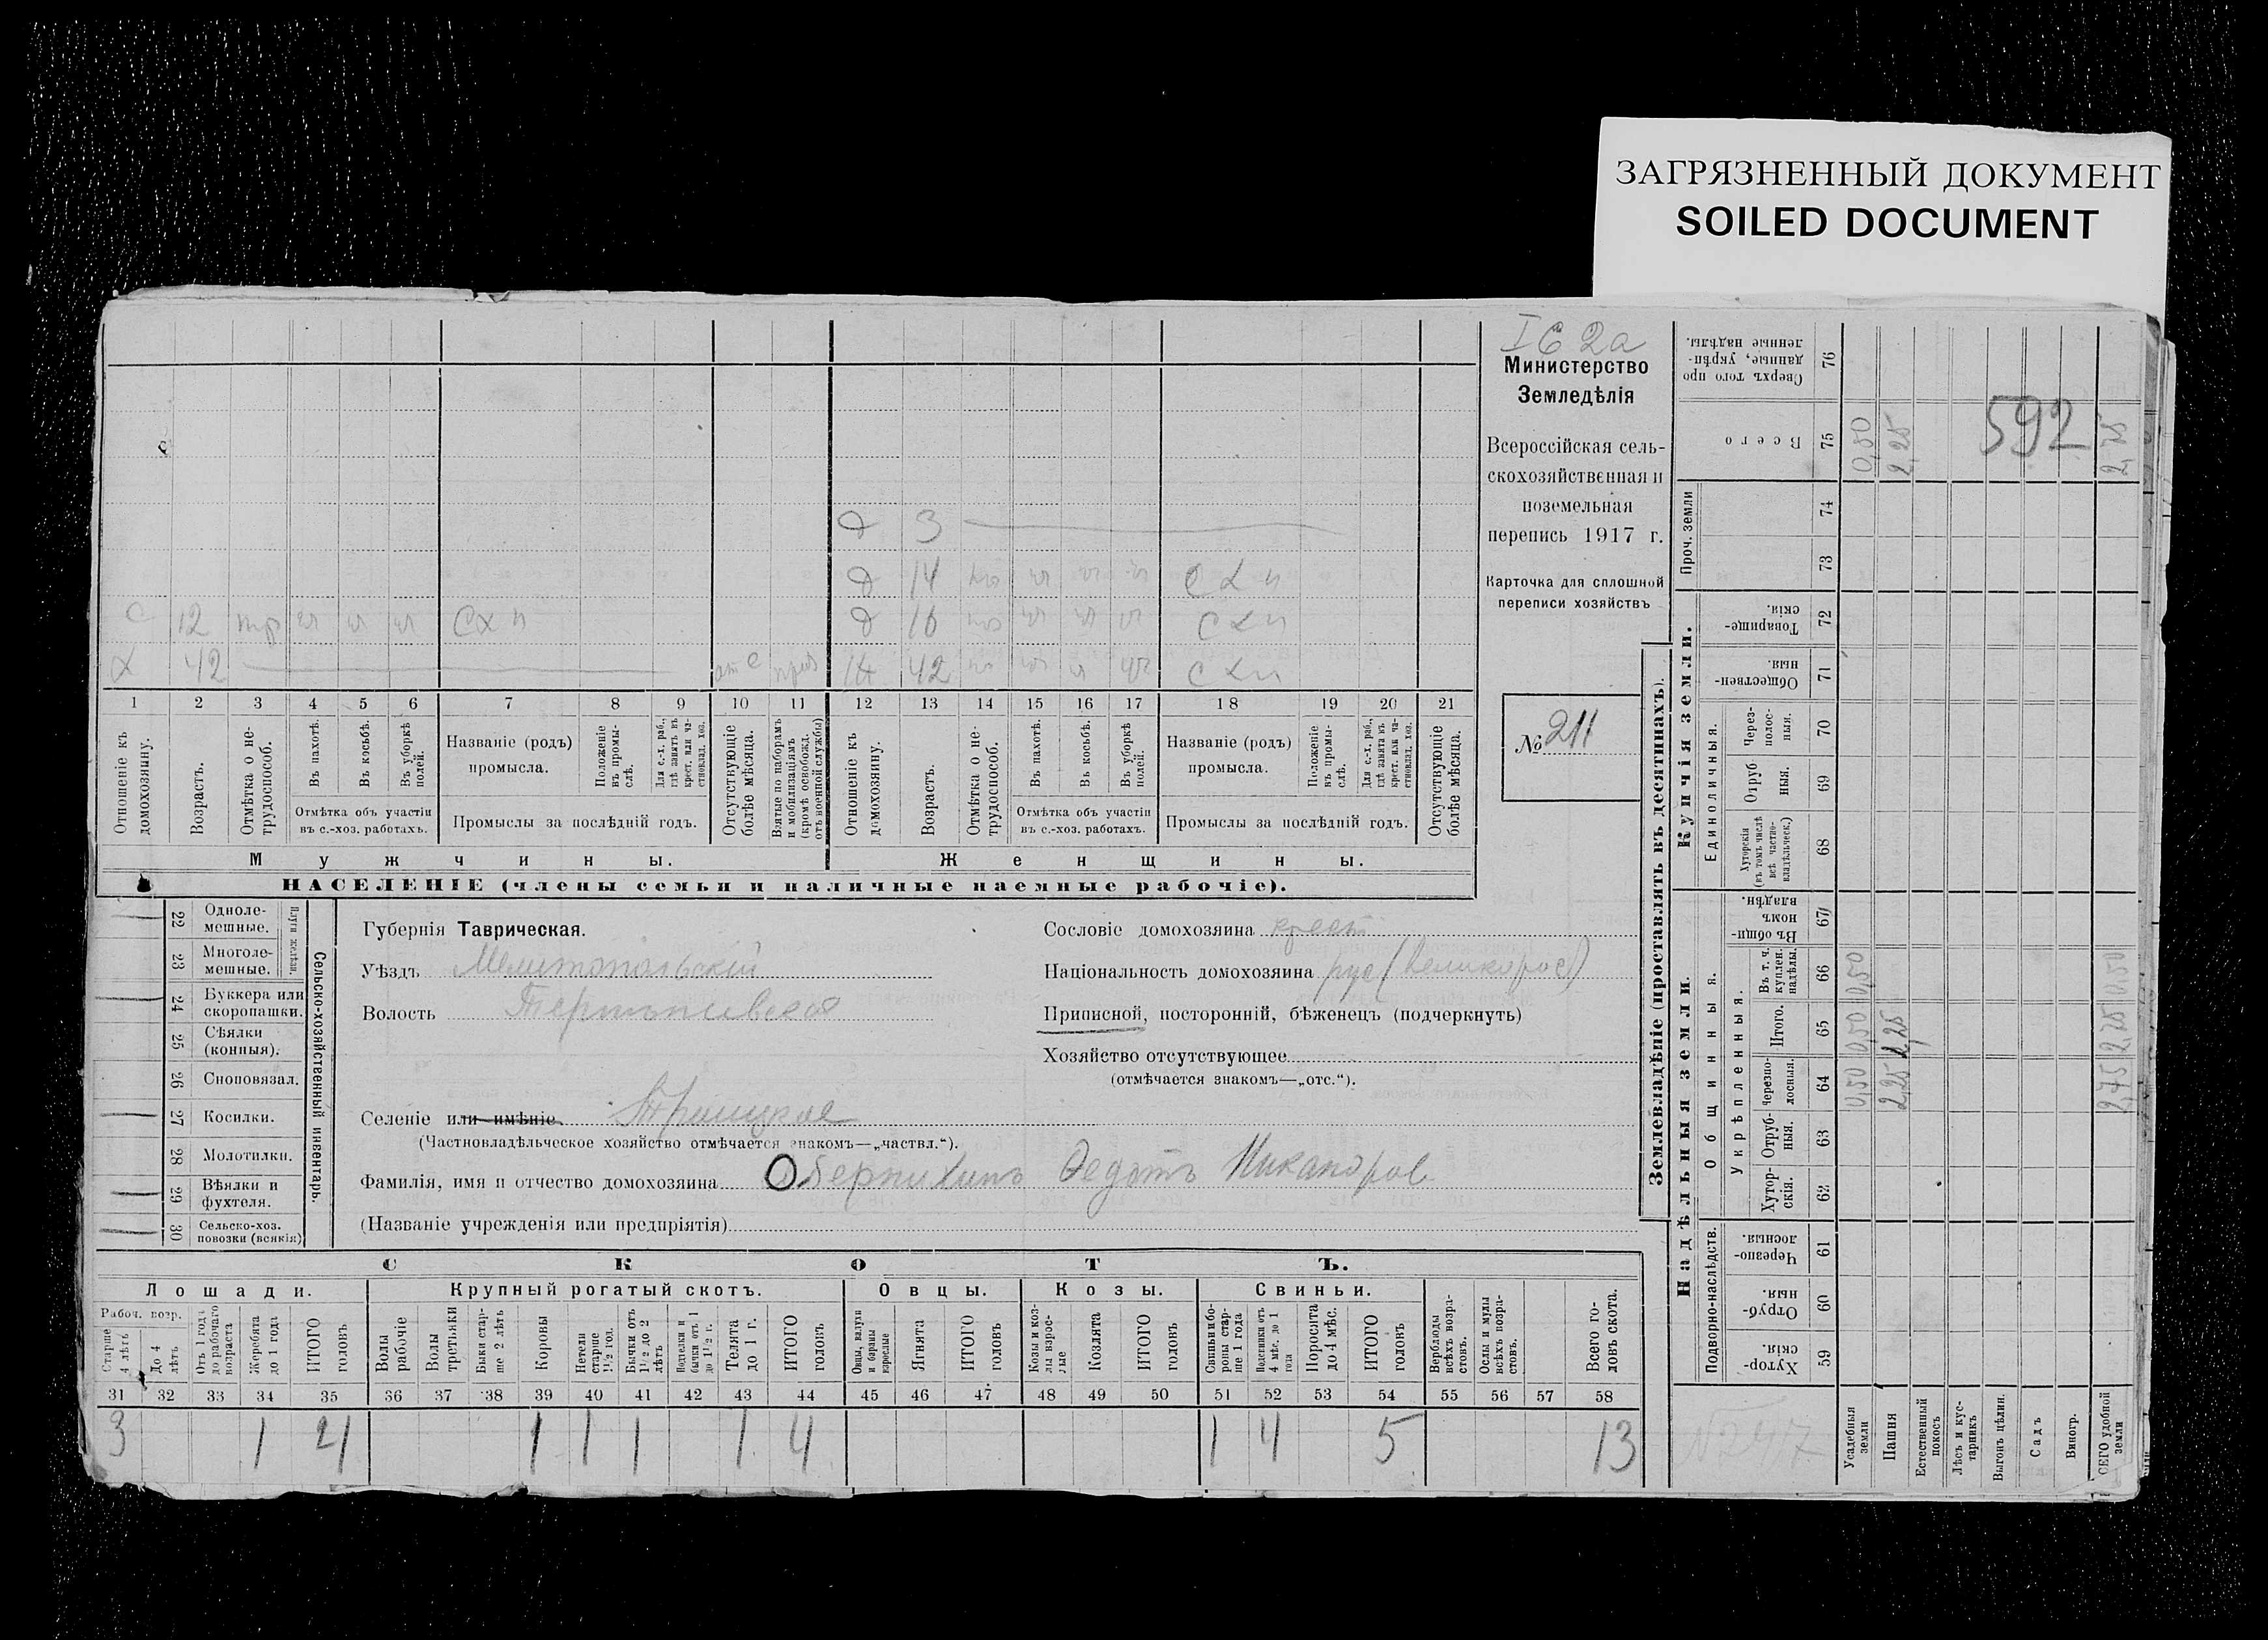 ЗАГРЯЗНЕННЫЙ ДОКУМЕНТ
SOILED DOCUMENT
I С 2а
Министерство
Земледѣлія
Всероссійская сель-
скохозяйственная и
поземельная
перепись 1917 г.
Карточка для сплошной
переписи хозяйствъ
№ 211
д 3
д 14 схп
с 12 схп д 10 схп
х 42 42 схп
1 2 3 4 5 6 7 8 9 10 11 12 13 14 15 16 17 18 19 20 21
Отношеніе къ домохозяину.
Возрастъ.
Отмѣтка о не-трудоспособ.
Въ пахотѣ.
Въ косьбѣ.
Въ уборкѣ полей.
Отмѣтка объ участіи
въ с.-хоз. работахъ.
Названіе (родъ)
промысла.
Положеніе въ промы-слѣ.
Для с.-х. раб., гдѣ занятъ въ крест. или ча-стновлад. хоз.
Промыслы за послѣдній годъ.
Отсутствующіе болѣе мѣсяца.
Взятые по наборамъ и мобилизаціямъ (кромѣ освобожд. отъ военной службы)
Отношеніе къ домохозяину.
Возрастъ.
Отмѣтка о не-трудоспособ.
Въ пахотѣ.
Въ косьбѣ.
Въ уборкѣ полей.
Отмѣтка объ участіи
въ с.-хоз. работахъ.
Названіе (родъ)
промысла.
Положеніе въ промы-слѣ.
Для с.-х. раб., гдѣ занята въ крест. или ча-стновлад. хоз.
Промыслы за послѣдній годъ.
Отсутствующіе болѣе мѣсяца.
Мужчины. Женщины.
НАСЕЛЕНІЕ (члены семьи и наличные наемные рабочіе).
22 Одноле-мешные.
23 Многоле-мешные.
Плуги желѣзн.
24 Буккера или скоропашки.
25 Сѣялки (конныя).
26 Сноповязал.
27 Косилки.
28 Молотилки.
29 Вѣялки и фухтеля.
30 Сельско-хоз. повозки (всякія)
Сельско-хозяйственный инвентарь.
Губернія Таврическая.
Уѣздъ Мелитопольскій
Волость
Селеніе или имѣніе Троицкое
(Частновладѣльческое хозяйство отмѣчается знакомъ—„частвл.“).
Фамилія, имя и отчество домохозяина Обернихинъ Федотъ Никаноров
(Названіе учрежденія или предпріятія)
Сословіе домохозяина крест
Національность домохозяина рус (великорос)
Приписной, посторонній, бѣженецъ (подчеркнуть)
Хозяйство отсутствующее
(отмѣчается знакомъ—„отс.“).
СКОТЪ.
Лошади. Крупный рогатый скотъ. Овцы. Козы. Свиньи.
Рабоч. возр.
Старше 4 лѣтъ
До 4 лѣтъ
Отъ 1 года до рабочаго возраста
Жеребята до 1 года
ИТОГО головъ
Волы рабочіе
Волы третьяки
Быки стар-ше 2 лѣтъ
Коровы
Нетели старше 1½ год.
Бычки отъ 1½ до 2 лѣтъ
Подтелки и бычки отъ 1 до 1½ г.
Телята до 1 г.
ИТОГО головъ
Овцы, валухи и бараны взрослые
Ягнята
ИТОГО головъ
Козы и коз-лы взрос-лые
Козлята
ИТОГО головъ
Свиньи и бо-ровы стар-ше 1 года
Подсвинки отъ 4 мѣс. до 1 года
Поросята до 4 мѣс.
ИТОГО головъ
Верблюды всѣхъ возра-стовъ.
Ослы и мулы всѣхъ возра-стовъ.
Всего го-ловъ скота.
31 32 33 34 35 36 37 38 39 40 41 42 43 44 45 46 47 48 49 50 51 52 53 54 55 56 57 58
3 1 4 1 1 1 1 4 1 4 5 13
Землевладѣніе (проставлять въ десятинахъ).
Купчія земли.
Надѣльныя земли.
Сверхъ того про данные, укрѣп-ленные надѣлы. 76
Всего 75 0,50 2,25 2,75
592
Проч. земли 74 73
Товарище-скія. 72
Обществен-ныя. 71
Единоличныя.
Через-полос-ныя. 70
Отруб ныя. 69
Хуторскія (въ томъ числѣ всѣ частно-владѣльческ.) 68
Общинныя.
Въ общи-номъ владѣн. 67
Укрѣпленныя.
Въ т. ч. куплен. надѣлы. 66 0,50 0,50
Итого. 65 0,50 2,25 2,25
Черезпо-лосныя. 64 0,50 2,25 2,75
Отруб-ныя. 63
Хутор-скія. 62
Подворно-наслѣдств.
Черезпо-лосныя. 61
Отруб-ныя. 60
Хутор-скія. 59
№ 247
Усадебныя земли
Пашня
Естественный покосъ
Лѣсъ и кус-тарникъ
Выгонъ цѣлин.
Садъ
Виногр.
СЕГО удобной земли